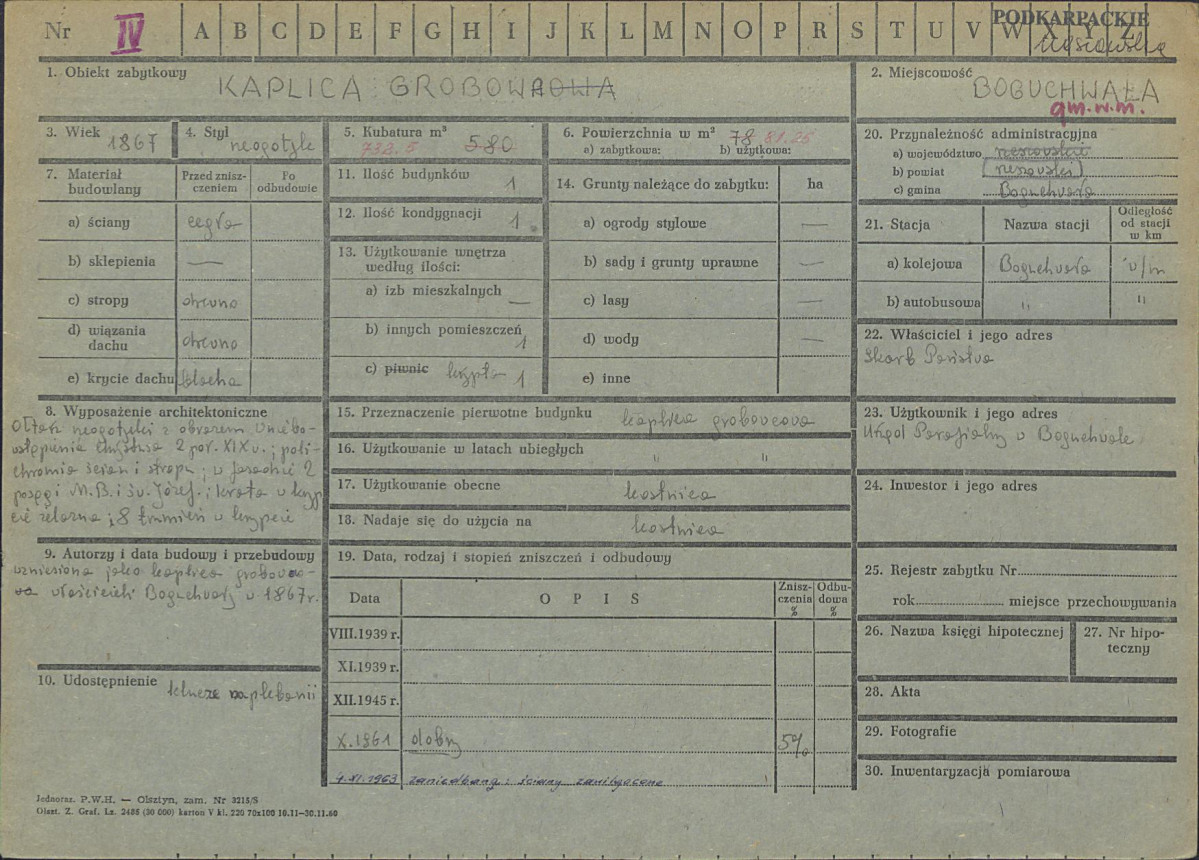 Nr IV A B C D E F G H I J K L M N O P R S T U V W X Y Z
PODKARPACKIE
1. Obiekt zabytkowy KAPLICA GROBOWA
2. Miejscowość BOGUCHWAŁA
gm.w.m.
3. Wiek 1867
4. Styl neogotyk
5. Kubatura m³ 580
732.5
6. Powierzchnia w m² 78 81.25
a) zabytkowa: b) użytkowa:
7. Materiał budowlany
Przed zniszczeniem
Po odbudowie
a) ściany cegła
b) sklepienia —
c) stropy drewno
d) wiązania dachu drewno
e) krycie dachu blacha
11. Ilość budynków 1
12. Ilość kondygnacji 1
13. Użytkowanie wnętrza
według ilości:
a) izb mieszkalnych —
b) innych pomieszczeń 1
c) piwnic krypta 1
14. Grunty należące do zabytku: ha
a) ogrody stylowe —
b) sady i grunty uprawne —
c) lasy —
d) wody —
e) inne
20. Przynależność administracyjna
a) województwo rzeszowskie
b) powiat rzeszowski
c) gmina Boguchwała
21. Stacja
Nazwa stacji
Odległość
od stacji
w km
a) kolejowa Boguchwała w/m
b) autobusowa " "
22. Właściciel i jego adres
Skarb Państwa
8. Wyposażenie architektoniczne
Ołtarz neogotycki z obrazem Wniebo-
wstąpienia Chrystusa 2 poł. XIX w.; poli-
chromia ścian i stropu; w fasadzie 2
posągi M.B. i św. Józef.; krata w kryp
cie żelazna; 8 trumien w krypcie
9. Autorzy i data budowy i przebudowy
wzniesiona jako kaplica grobowo-
wa właścicieli Boguchwały w 1867 r.
10. Udostępnienie klucze na plebanii
15. Przeznaczenie pierwotne budynku kaplica grobowcowa
16. Użytkowanie w latach ubiegłych " "
17. Użytkowanie obecne kostnica
18. Nadaje się do użycia na kostnica
19. Data, rodzaj i stopień zniszczeń i odbudowy
Data
O P I S
Znisz-
czenia
%
Odbu-
dowa
%
VIII.1939 r.
XI.1939 r.
XII.1945 r.
X.1961 dobry 5%
7.XI.1963 zaniedbany; ściany zawilgocone
23. Użytkownik i jego adres
Urząd Parafialny w Boguchwale
24. Inwestor i jego adres
25. Rejestr zabytku Nr
rok miejsce przechowywania
26. Nazwa księgi hipotecznej
27. Nr hipo-
teczny
28. Akta
29. Fotografie
30. Inwentaryzacja pomiarowa
Jednoraz. P.W.H. — Olsztyn, zam. Nr 3215/S
Olszt. Z. Graf. Lz. 2485 (30 000) karton V kl. 220 70x100 10.11—30.11.60